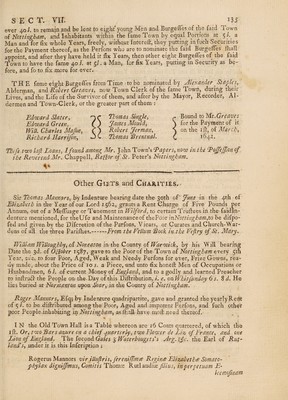 SECT. VII. 135
over 40l. to remain and be lent to eight young Men and Burgesses of the said Town
of Nottingham, and Inhabitants within the same Town by equal Portions at 5l. a
Man and for six whole Years, freely, without Interest, they putting in such Securities
for the Payment thereof, as the Persons who are to nominate the said Burgesses shall
appoint, and after they have held it six Years, then other eight Burgesses of the said
Town to have the same 40l. at 5l. a Man, for six Years, putting in Security as be-
fore, and so to six more for ever.
THE same eight Burgesses from Time to be nominated by Alexander Staples,
Alderman, and Robert Greaves, now Town Clerk of the same Town, during their
Lives, and the Life of the Survivor of them, and after by the Mayor, Recorder, Al-
derman and Town-Clerk, or the greater part of them:
Edward Slater, Thomas Single, Bound to Mr. Greaves
Edward Greene, James Mould, for the Payment of it
Will. Charles Mason, Robert Jerman, on the 1st. of March,
Richard Harrison, Thomas Brentnal. 1641.
This two last Loans, I found among Mr. John Town's Papers, now in the Possession of
the Reverend Mr. Chappell, Rector of St. Peter's Nottingham.
Other GIFTS and CHARITIES.
Sir Thomas Manners, by Indenture bearing date the 20th of June in the 4th of
Elizabeth in the Year of our Lord 1562, grants a Rent Charge of Five Pounds per
Annum, out of a Messuage or Tenement in Wilford, to certain Trustees in the said In-
dentures mentioned, for the Use and Maintenance of the Poor in Nottingham, to be dispo-
sed and given by the Discretion of the Parson, Vicars, or Curates and Church-War-
dens of all the three Parishes.------From the Pelham Book in the Vestry of St. Mary.
William Willoughby, of Nuneaton in the County of Warwick, by his Will bearing
Date the 3d. of October 1587, gave to the Poor of the Town of Nottingham every 5th
Year, viz. to four Poor, Aged, Weak and Needy Persons for ever, Frize Gowns, rea-
dy made, about the Price of 10s. a Piece, and unto six honest Men of Occupations or
Husbandmen, 6l. of current Money of England, and to a godly and learned Preacher
to instruct the People on the Day of this Distribution, i. e. on Whitsunday 6s. 8d. He
lies buried at Normanton upon Soar, in the County of Nottingham.
Roger Manners, Esq; by Indenture quadripartite, gave and granted the yearly Rent
of 5l. to be distributed among the Poor, Aged and impotent Persons, and such other
poor People inhabiting in Nottingham, as shall have most need thereof.
IN the Old Town Hall is a Table whereon are 16 Coats quartered, of which the
1st. Or, two Bars azure in a chief quarterly, two Flower de Liz of France, and one
Lion of England. The second Gules 3 Waterbougets's Arg. &c. the Earl of Rut-
land's, under it is this Inscription;
Rogerus Manners vir illustris, serenissimæ Reginæ Elizabethæ Somato-
phylax dignissimus, Comitis Thomæ Rutlandiæ filius, in perpetuam E-
leemosinam